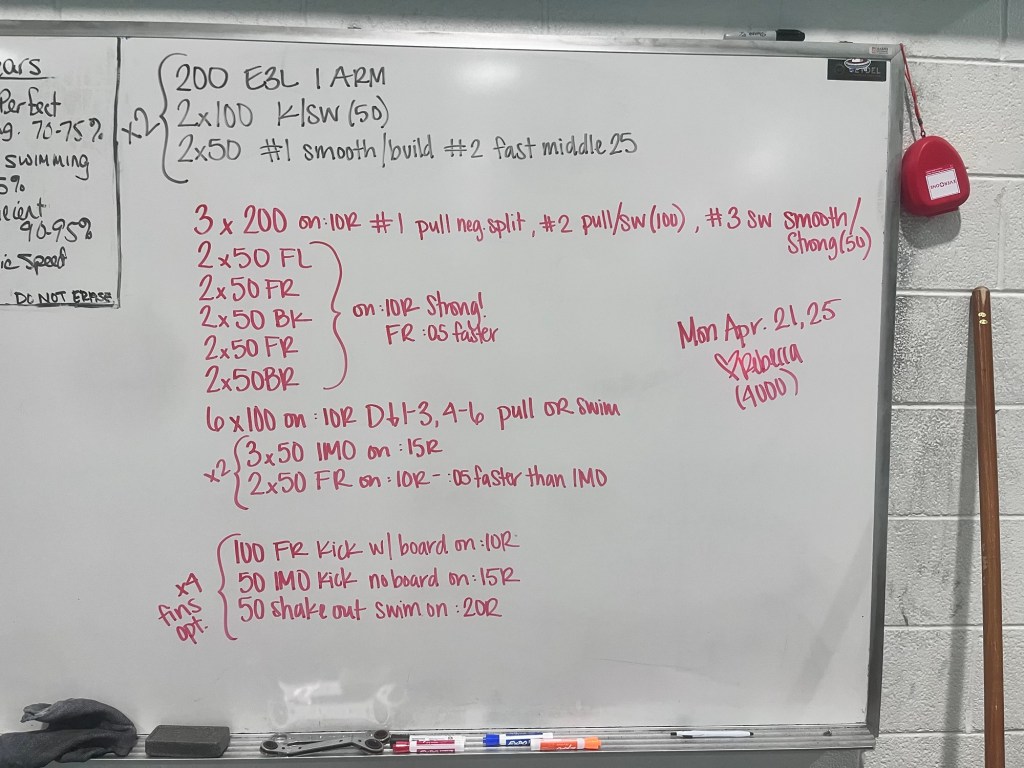 ars
Perfect
g. 70-75%
SWIMMING
5%
icient
90-95%
ic Speed
DO NOT ERASE
x2
200 E3L 1 ARM
2x100 K/SW (50)
2x50 #1 smooth/build #2 fast middle 25
3 x 200 on :10R #1 pull neg. split, #2 pull/sw (100), #3 sw smooth/
strong (50)
2x50 FL
2x50 FR
2x50 BK
2x50 FR
2x50 BR
on :10R Strong!
FR :05 faster
Mon Apr. 21, 25
♡ Rebecca
(4000)
6 x 100 on :10R D↓1-3, 4-6 pull OR swim
x2
3x50 IMO on :15R
2x50 FR on :10R - :05 faster than IMO
x4
fins
opt.
100 FR Kick w/ board on :10R
50 IMO Kick no board on :15R
50 shake out swim on :20R